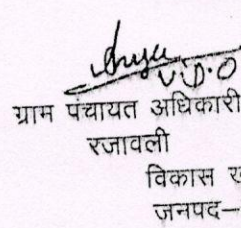 V.D.O
ग्राम पंचायत अधिकारी
रजावली
विकास
जनपद-